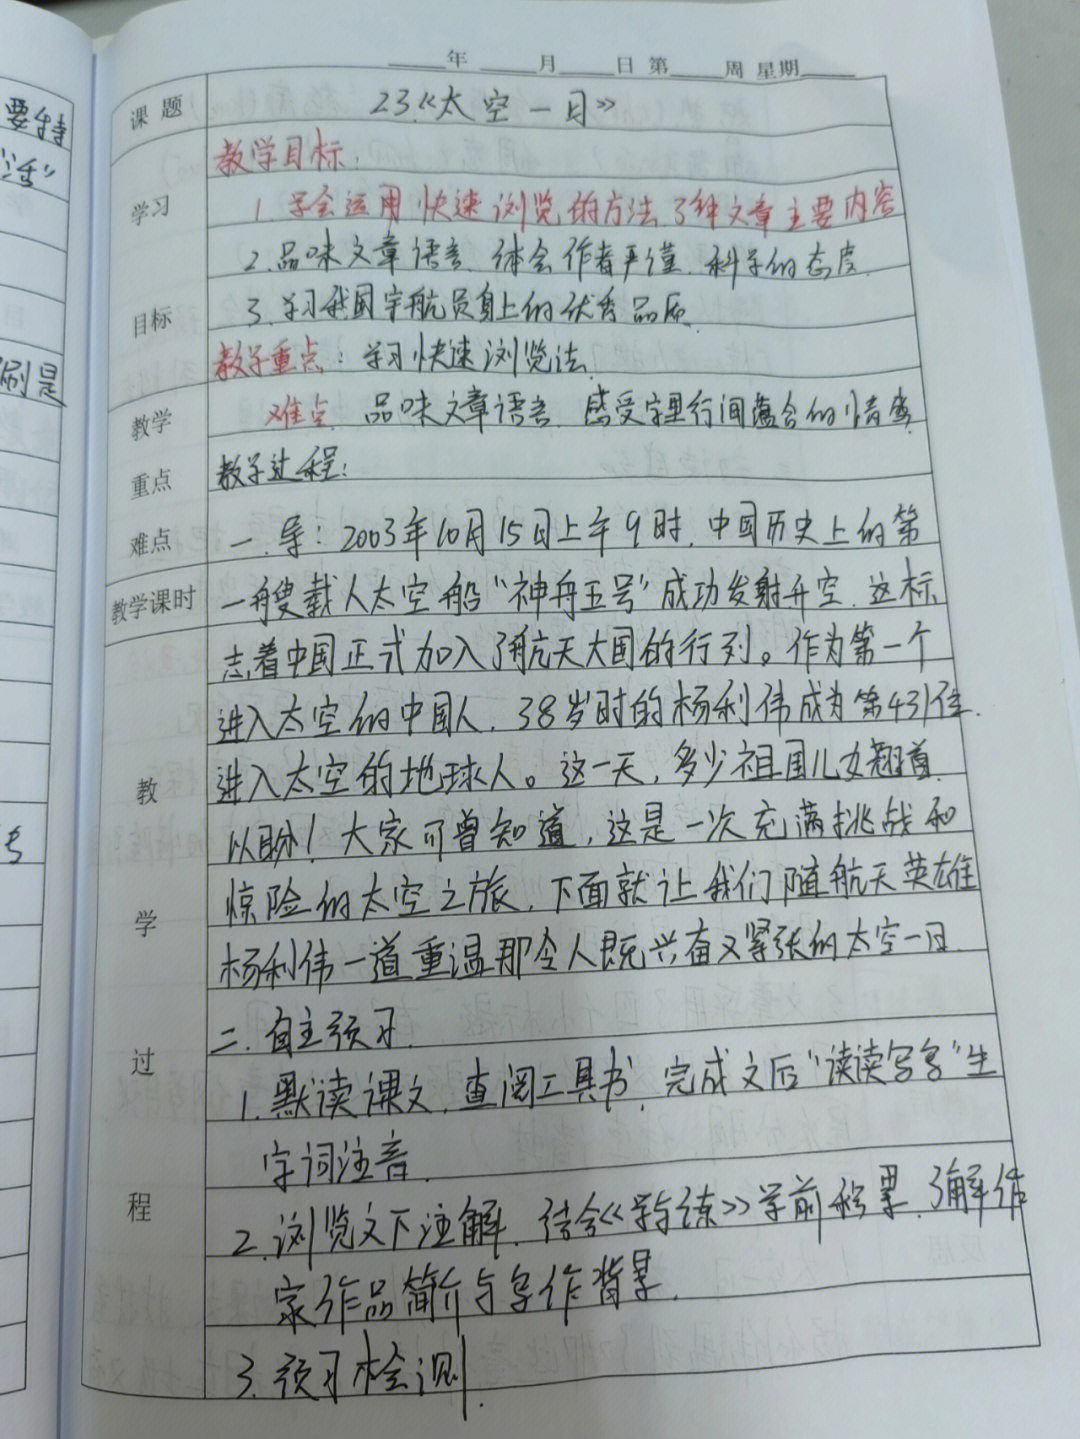 要特
活”
刷是
____年____月____日 第____周 星期____
课 题
23.《太空一日》
教学目标:
学习
1.学会运用快速浏览的方法,了解文章主要内容
2.品味文章语言,体会作者严谨、科学的态度.
目标
3.学习我国宇航员身上的优秀品质.
教学重点:学习快速浏览法.
教学
难点 品味文章语言,感受字里行间蕴含的情感.
重点
教学过程:
难点
一.导:2003年10月15日上午9时,中国历史上的第
教学课时
一艘载人太空船“神舟五号”成功发射升空.这标
志着中国正式加入了航天大国的行列。作为第一个
进入太空的中国人,38岁时的杨利伟成为第431位
教
进入太空的地球人。这一天,多少祖国儿女翘首
以盼!大家可曾知道,这是一次充满挑战和
学
惊险的太空之旅,下面就让我们随航天英雄
杨利伟一道重温那令人既兴奋又紧张的太空一日.
二.自主预习.
过
1.默读课文,查阅工具书,完成文后“读读写写”生
字词注音.
程
2.浏览文下注解,结合《学练》学前积累,了解作
家作品简介与写作背景.
3.预习检测.